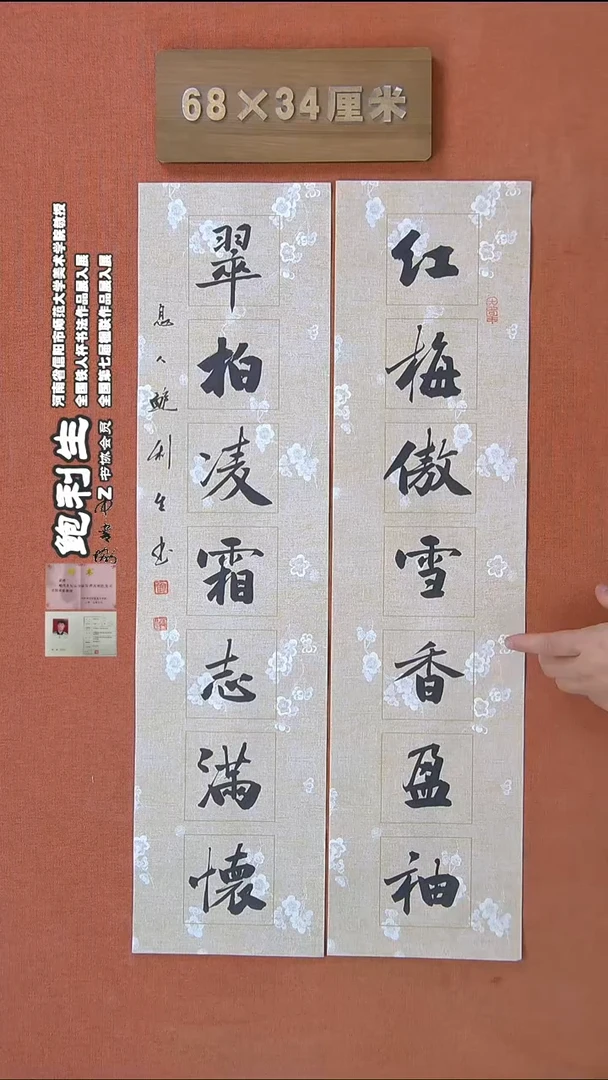 68×34厘米
红梅傲雪香盈袖
翠柏凌霜志满懷
息人鲍利生书
河南省信阳市师范大学美术学院教授
全国铁人杯书法作品展入展
全国第七届楹联作品展入展
鲍利生
中书协
书协会员